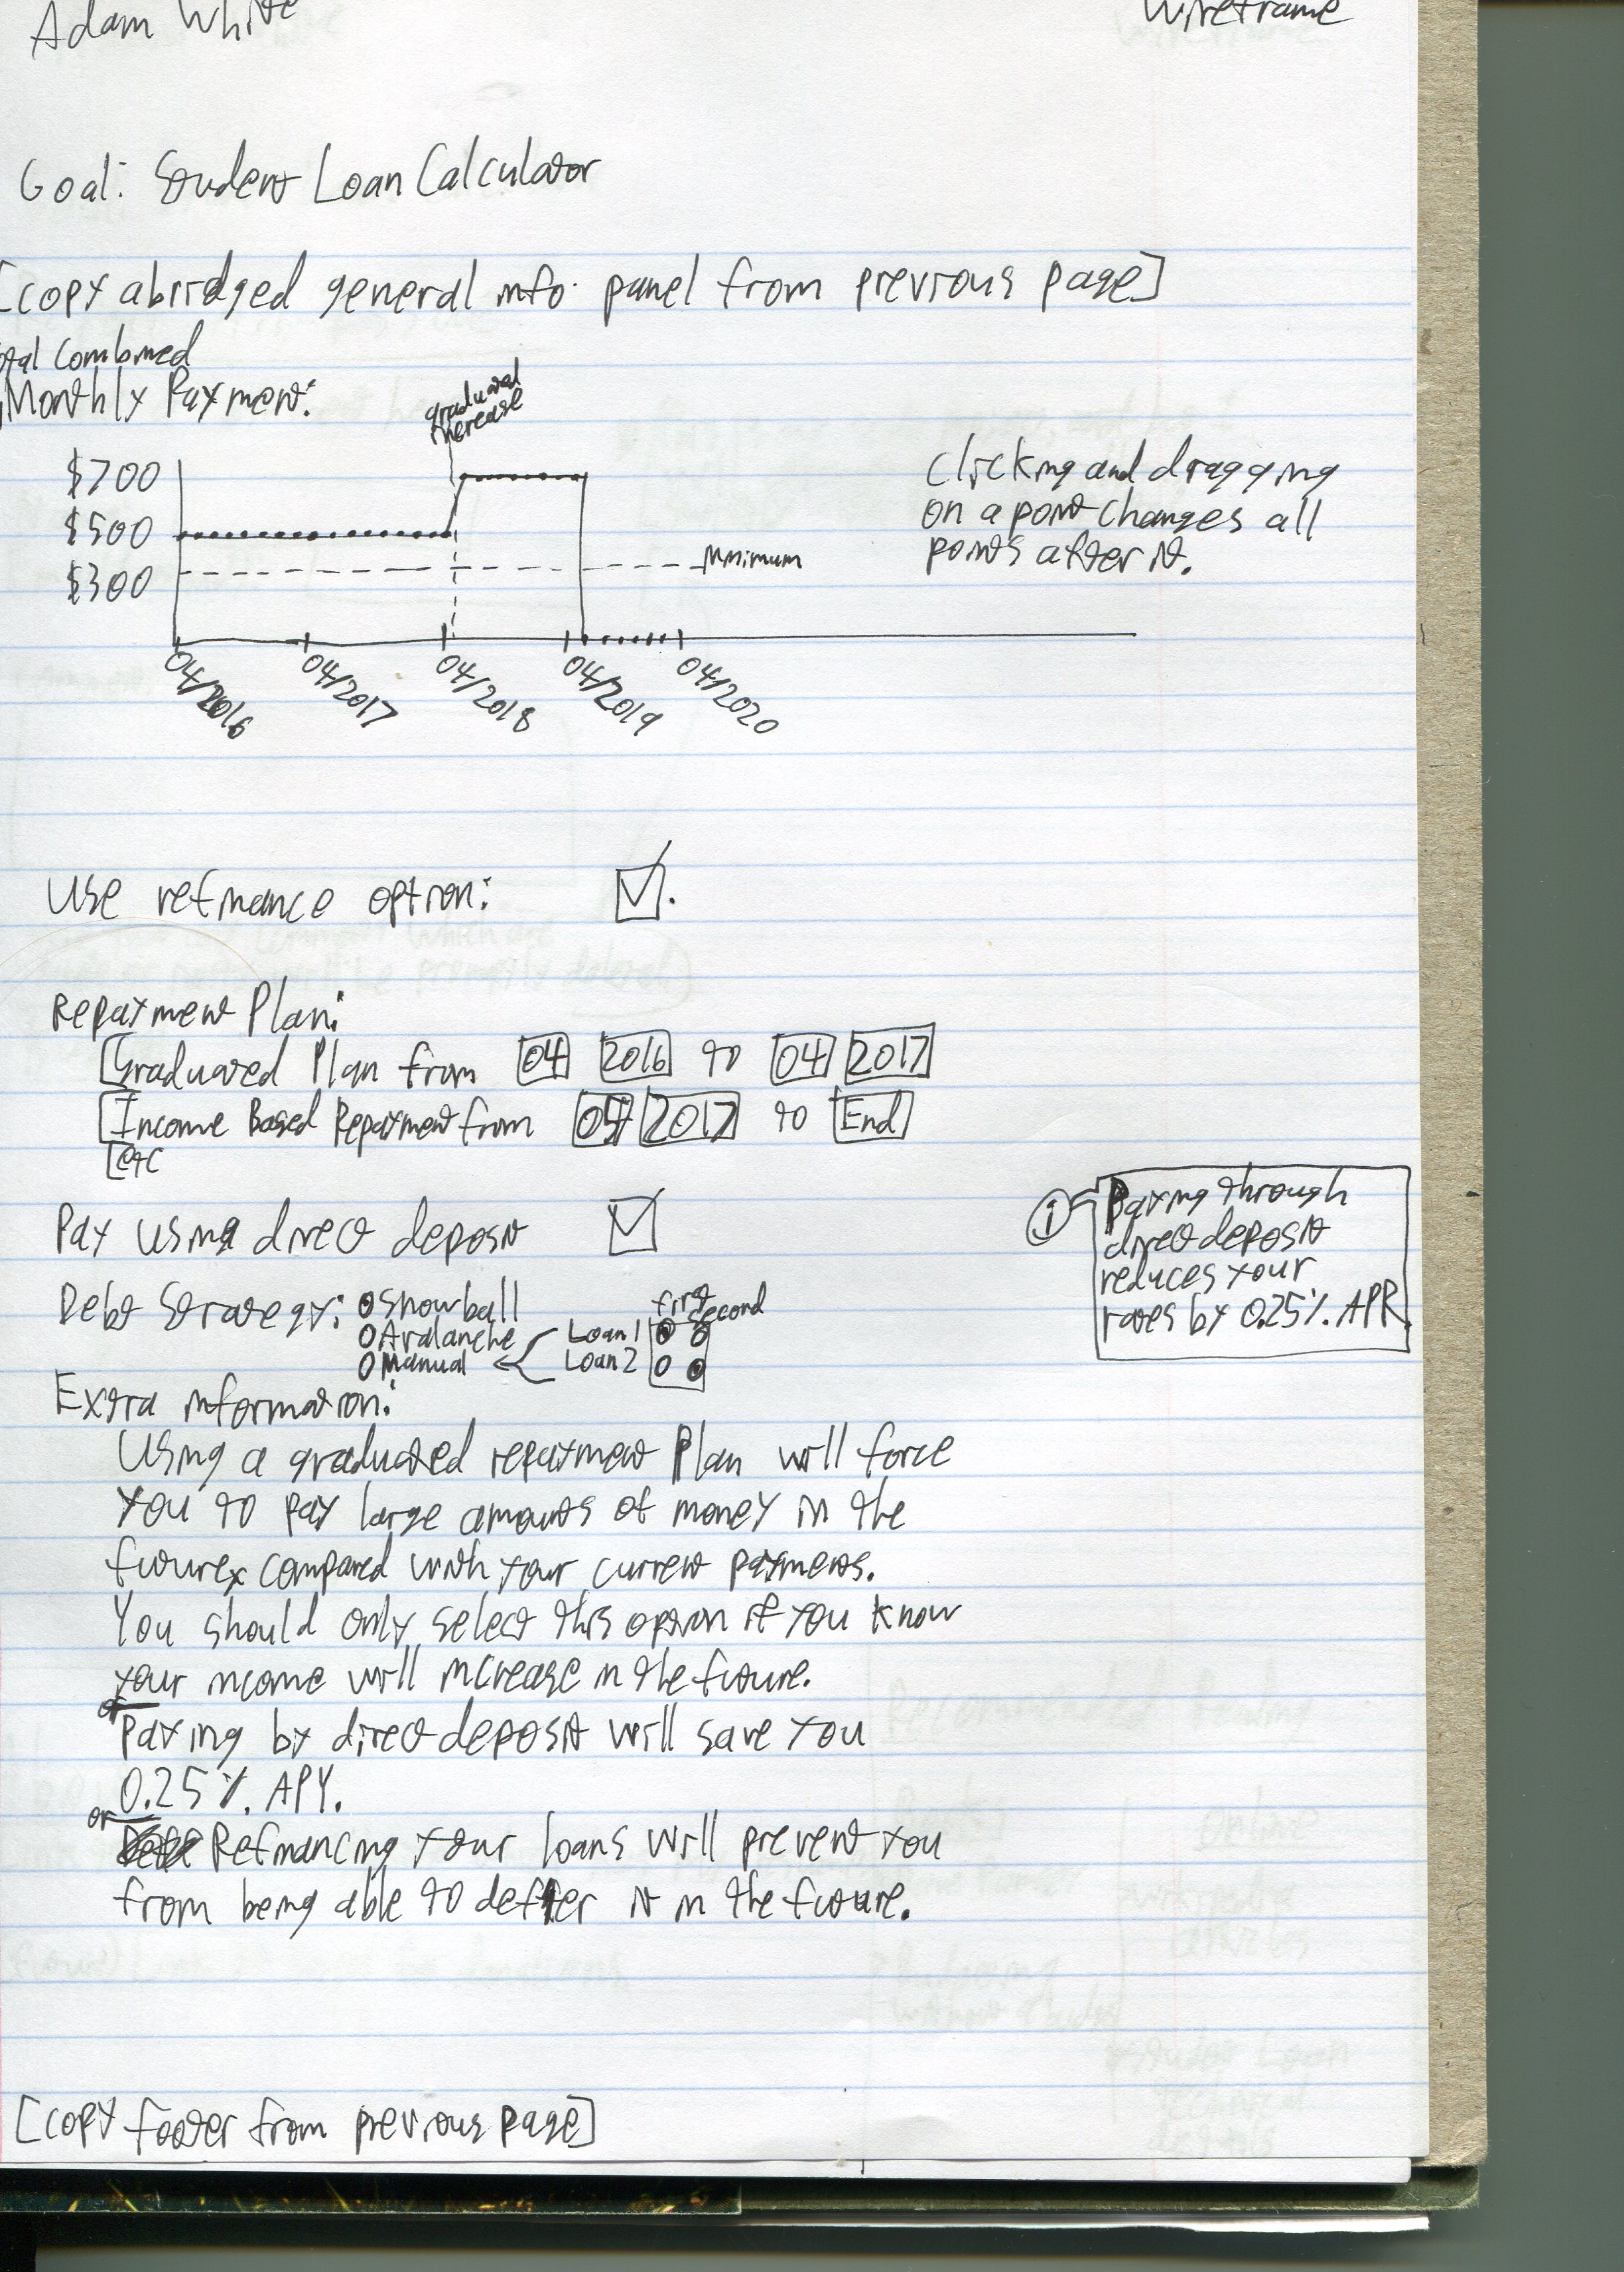 Adam White
Wireframe
Goal: Student Loan Calculator
[copy abridged general info. panel from previous page]
Total Combined
Monthly Payment:
gradual
increase
$700
$500
$300
Minimum
04/2016
04/2017
04/2018
04/2019
04/2020
Clicking and dragging
on a point changes all
points after it.
Use refinance option:
Repayment Plan:
Graduated Plan from 04 2016 to 04 2017
Income Based Repayment from 05 2017 to End
etc
Pay using direct deposit
i
Paying through
direct deposit
reduces your
rates by 0.25% APR
Debt Strategy:
Snowball
Avalanche
Manual
first
second
Loan 1
Loan 2
Extra information:
Using a graduated repayment Plan will force
you to pay large amounts of money in the
future compared with your current payments.
You should only select this option if you know
your income will increase in the future.
or
Paying by direct deposit will save you
0.25%. APY.
or
Refinancing your loans will prevent you
from being able to deffer it in the future.
[copy footer from previous page]